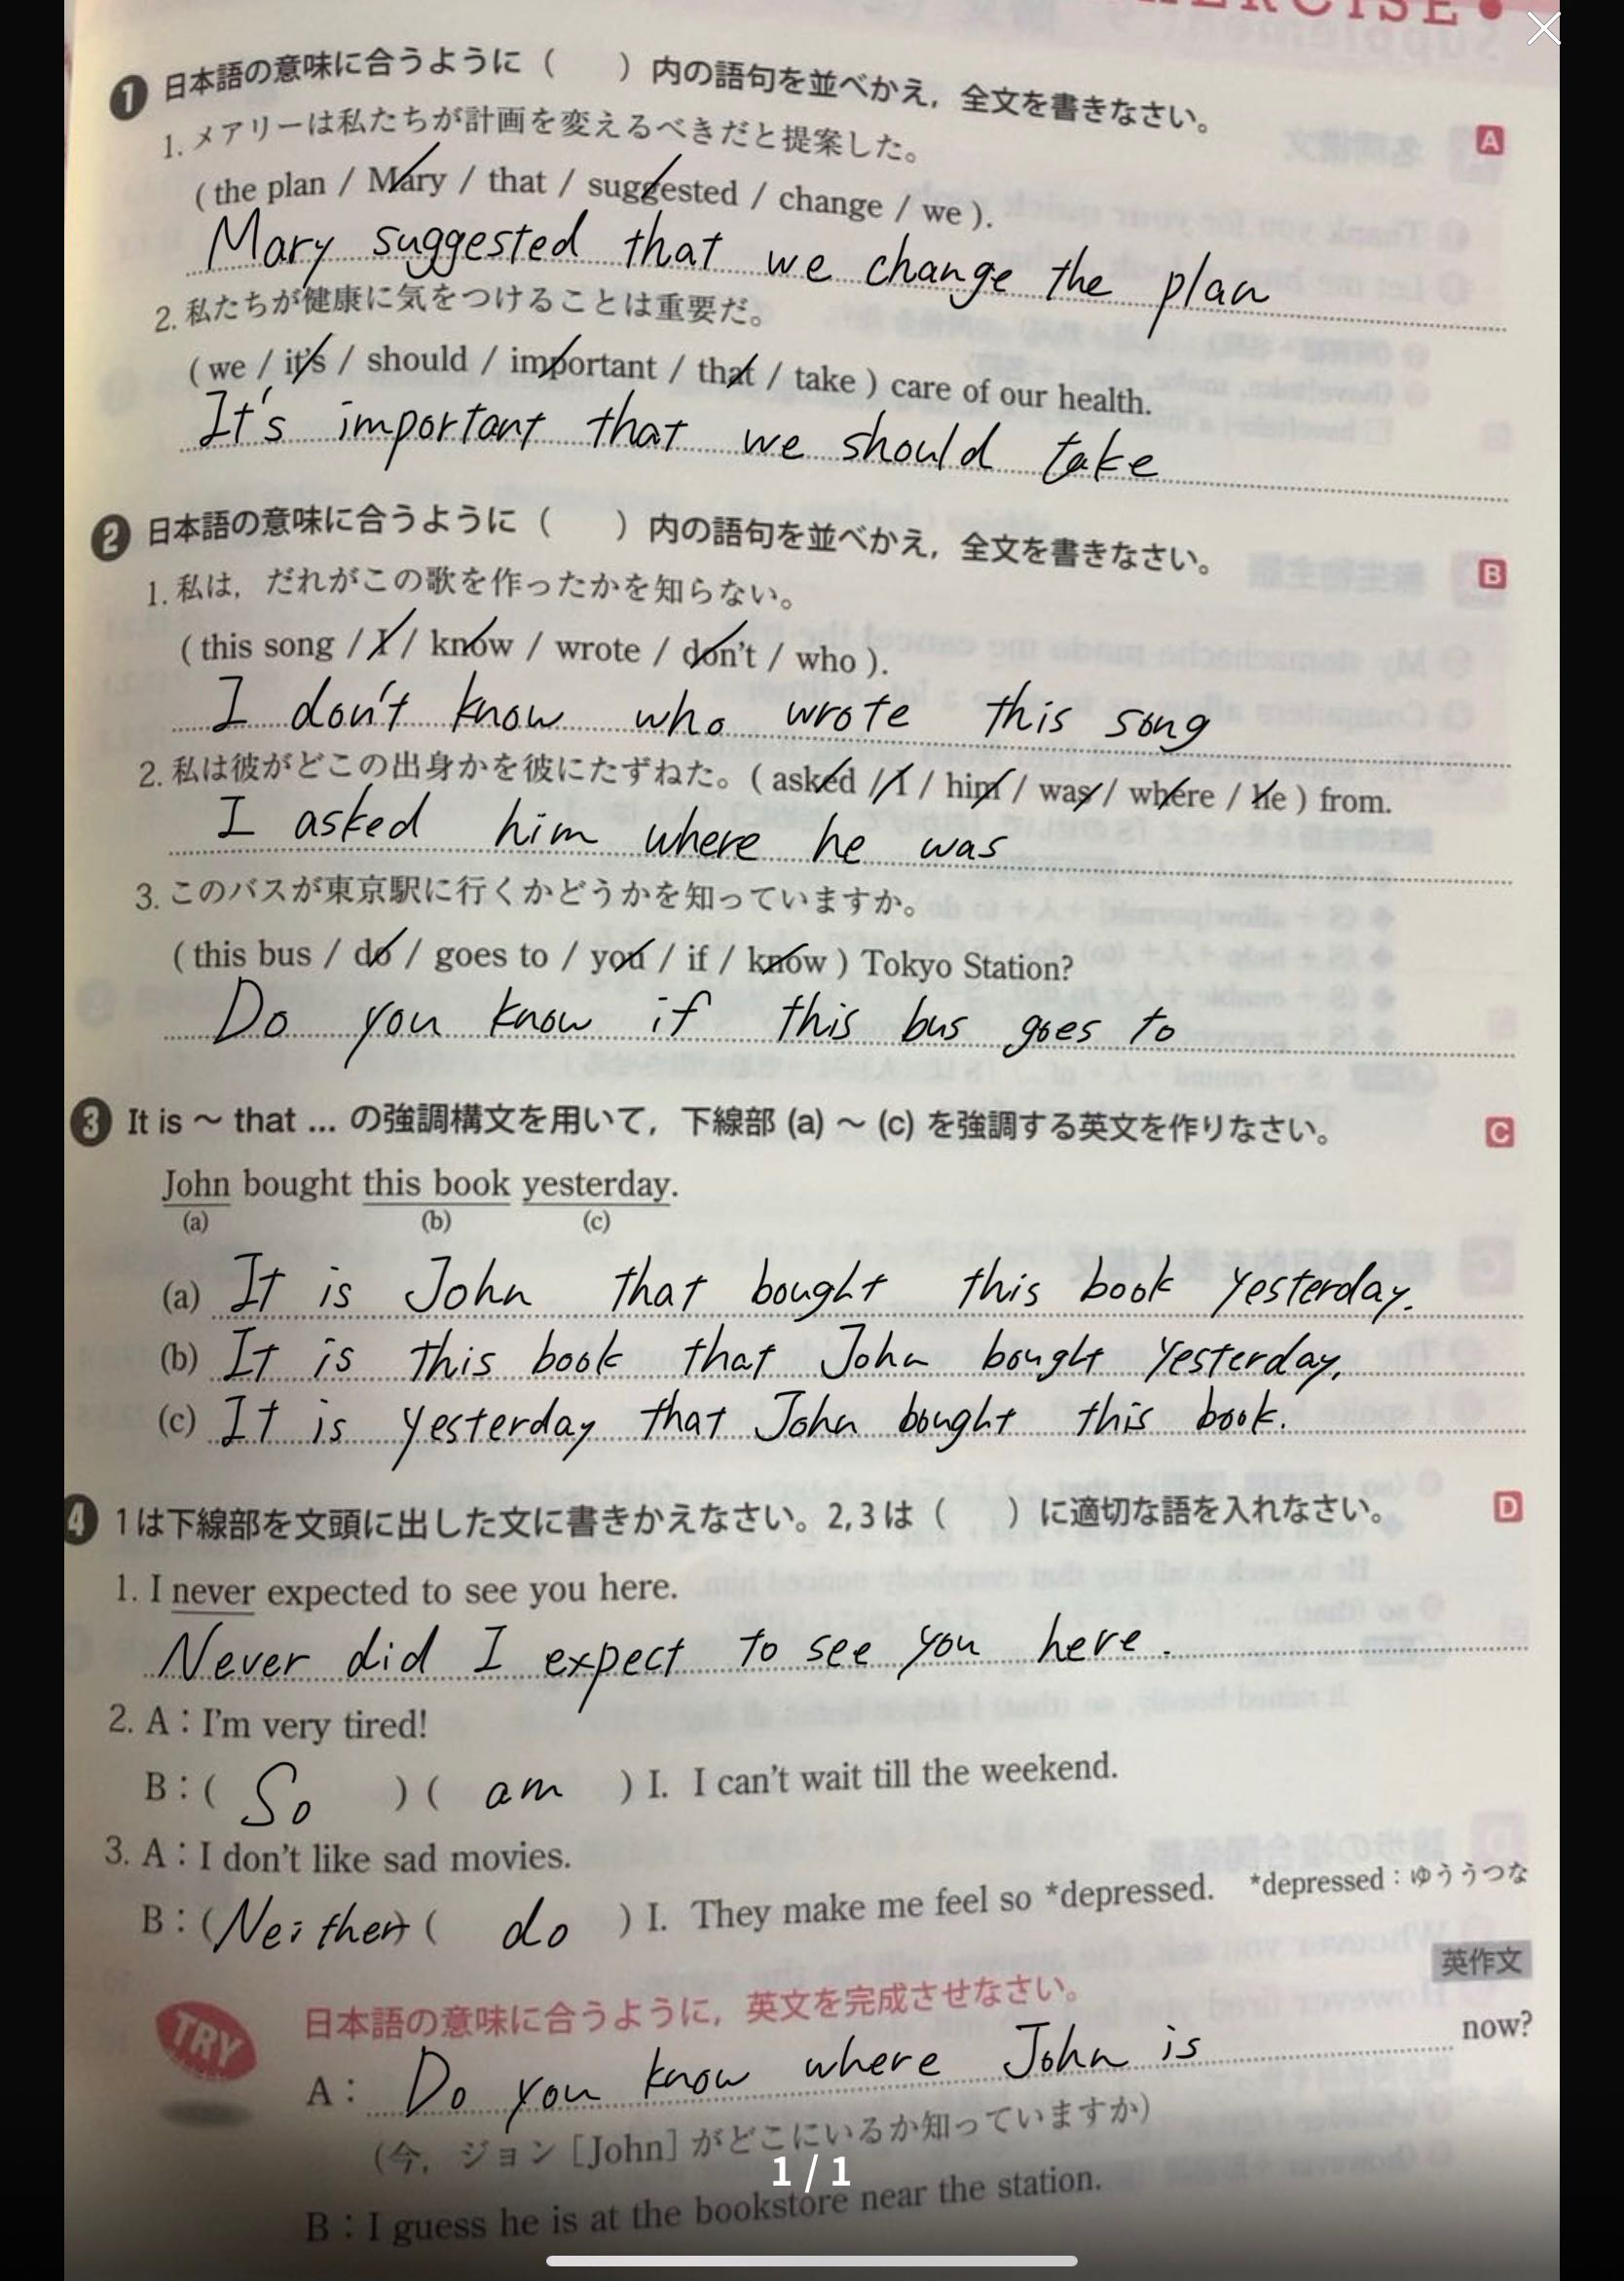 EXERCISE
1 日本語の意味に合うように（　　）内の語句を並べかえ，全文を書きなさい。 A
1. メアリーは私たちが計画を変えるべきだと提案した。
( the plan / Mary / that / suggested / change / we ).
Mary suggested that we change the plan
2. 私たちが健康に気をつけることは重要だ。
( we / it's / should / important / that / take ) care of our health.
It's important that we should take
2 日本語の意味に合うように（　　）内の語句を並べかえ，全文を書きなさい。 B
1. 私は，だれがこの歌を作ったかを知らない。
( this song / I / know / wrote / don't / who ).
I don't know who wrote this song
2. 私は彼がどこの出身かを彼にたずねた。( asked / I / him / was / where / he ) from.
I asked him where he was
3. このバスが東京駅に行くかどうかを知っていますか。
( this bus / do / goes to / you / if / know ) Tokyo Station?
Do you know if this bus goes to
3 It is ～ that … の強調構文を用いて，下線部 (a) ～ (c) を強調する英文を作りなさい。 C
John bought this book yesterday.
(a) (b) (c)
(a) It is John that bought this book yesterday.
(b) It is this book that John bought yesterday.
(c) It is yesterday that John bought this book.
4 1は下線部を文頭に出した文に書きかえなさい。2, 3は（　　）に適切な語を入れなさい。 D
1. I never expected to see you here.
Never did I expect to see you here.
2. A : I'm very tired!
B : ( So ) ( am ) I. I can't wait till the weekend.
3. A : I don't like sad movies.
B : ( Neither ) ( do ) I. They make me feel so *depressed. *depressed：ゆううつな
英作文
TRY 日本語の意味に合うように，英文を完成させなさい。
A : Do you know where John is now?
(今，ジョン［John］がどこにいるか知っていますか)
1 / 1
B : I guess he is at the bookstore near the station.